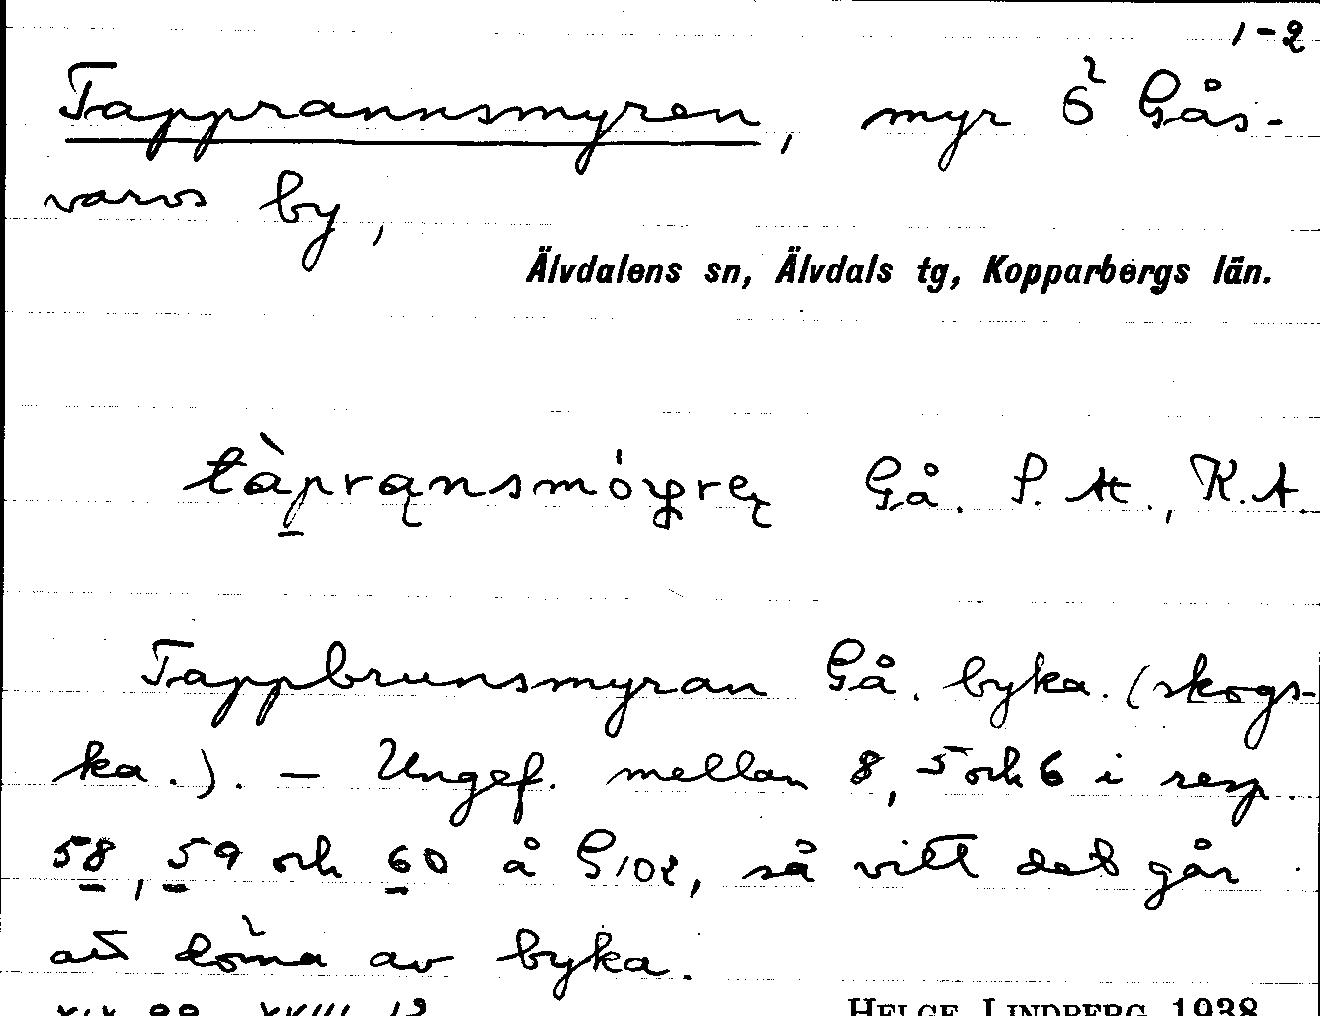 1-2
Tapprannsmyren, myr ö Gås-
varvs by,
Älvdalens sn, Älvdals tg, Kopparbergs län.
Gå. K.A.
Tappbrunsmyran Gå. byka. (skogs-
ka.). — Ungef. mellan 8, 5 och 6 i resp.
58, 59 och 60 å G102, så vitt det går
att döma av byka.
HELGE LINDBERG 1938